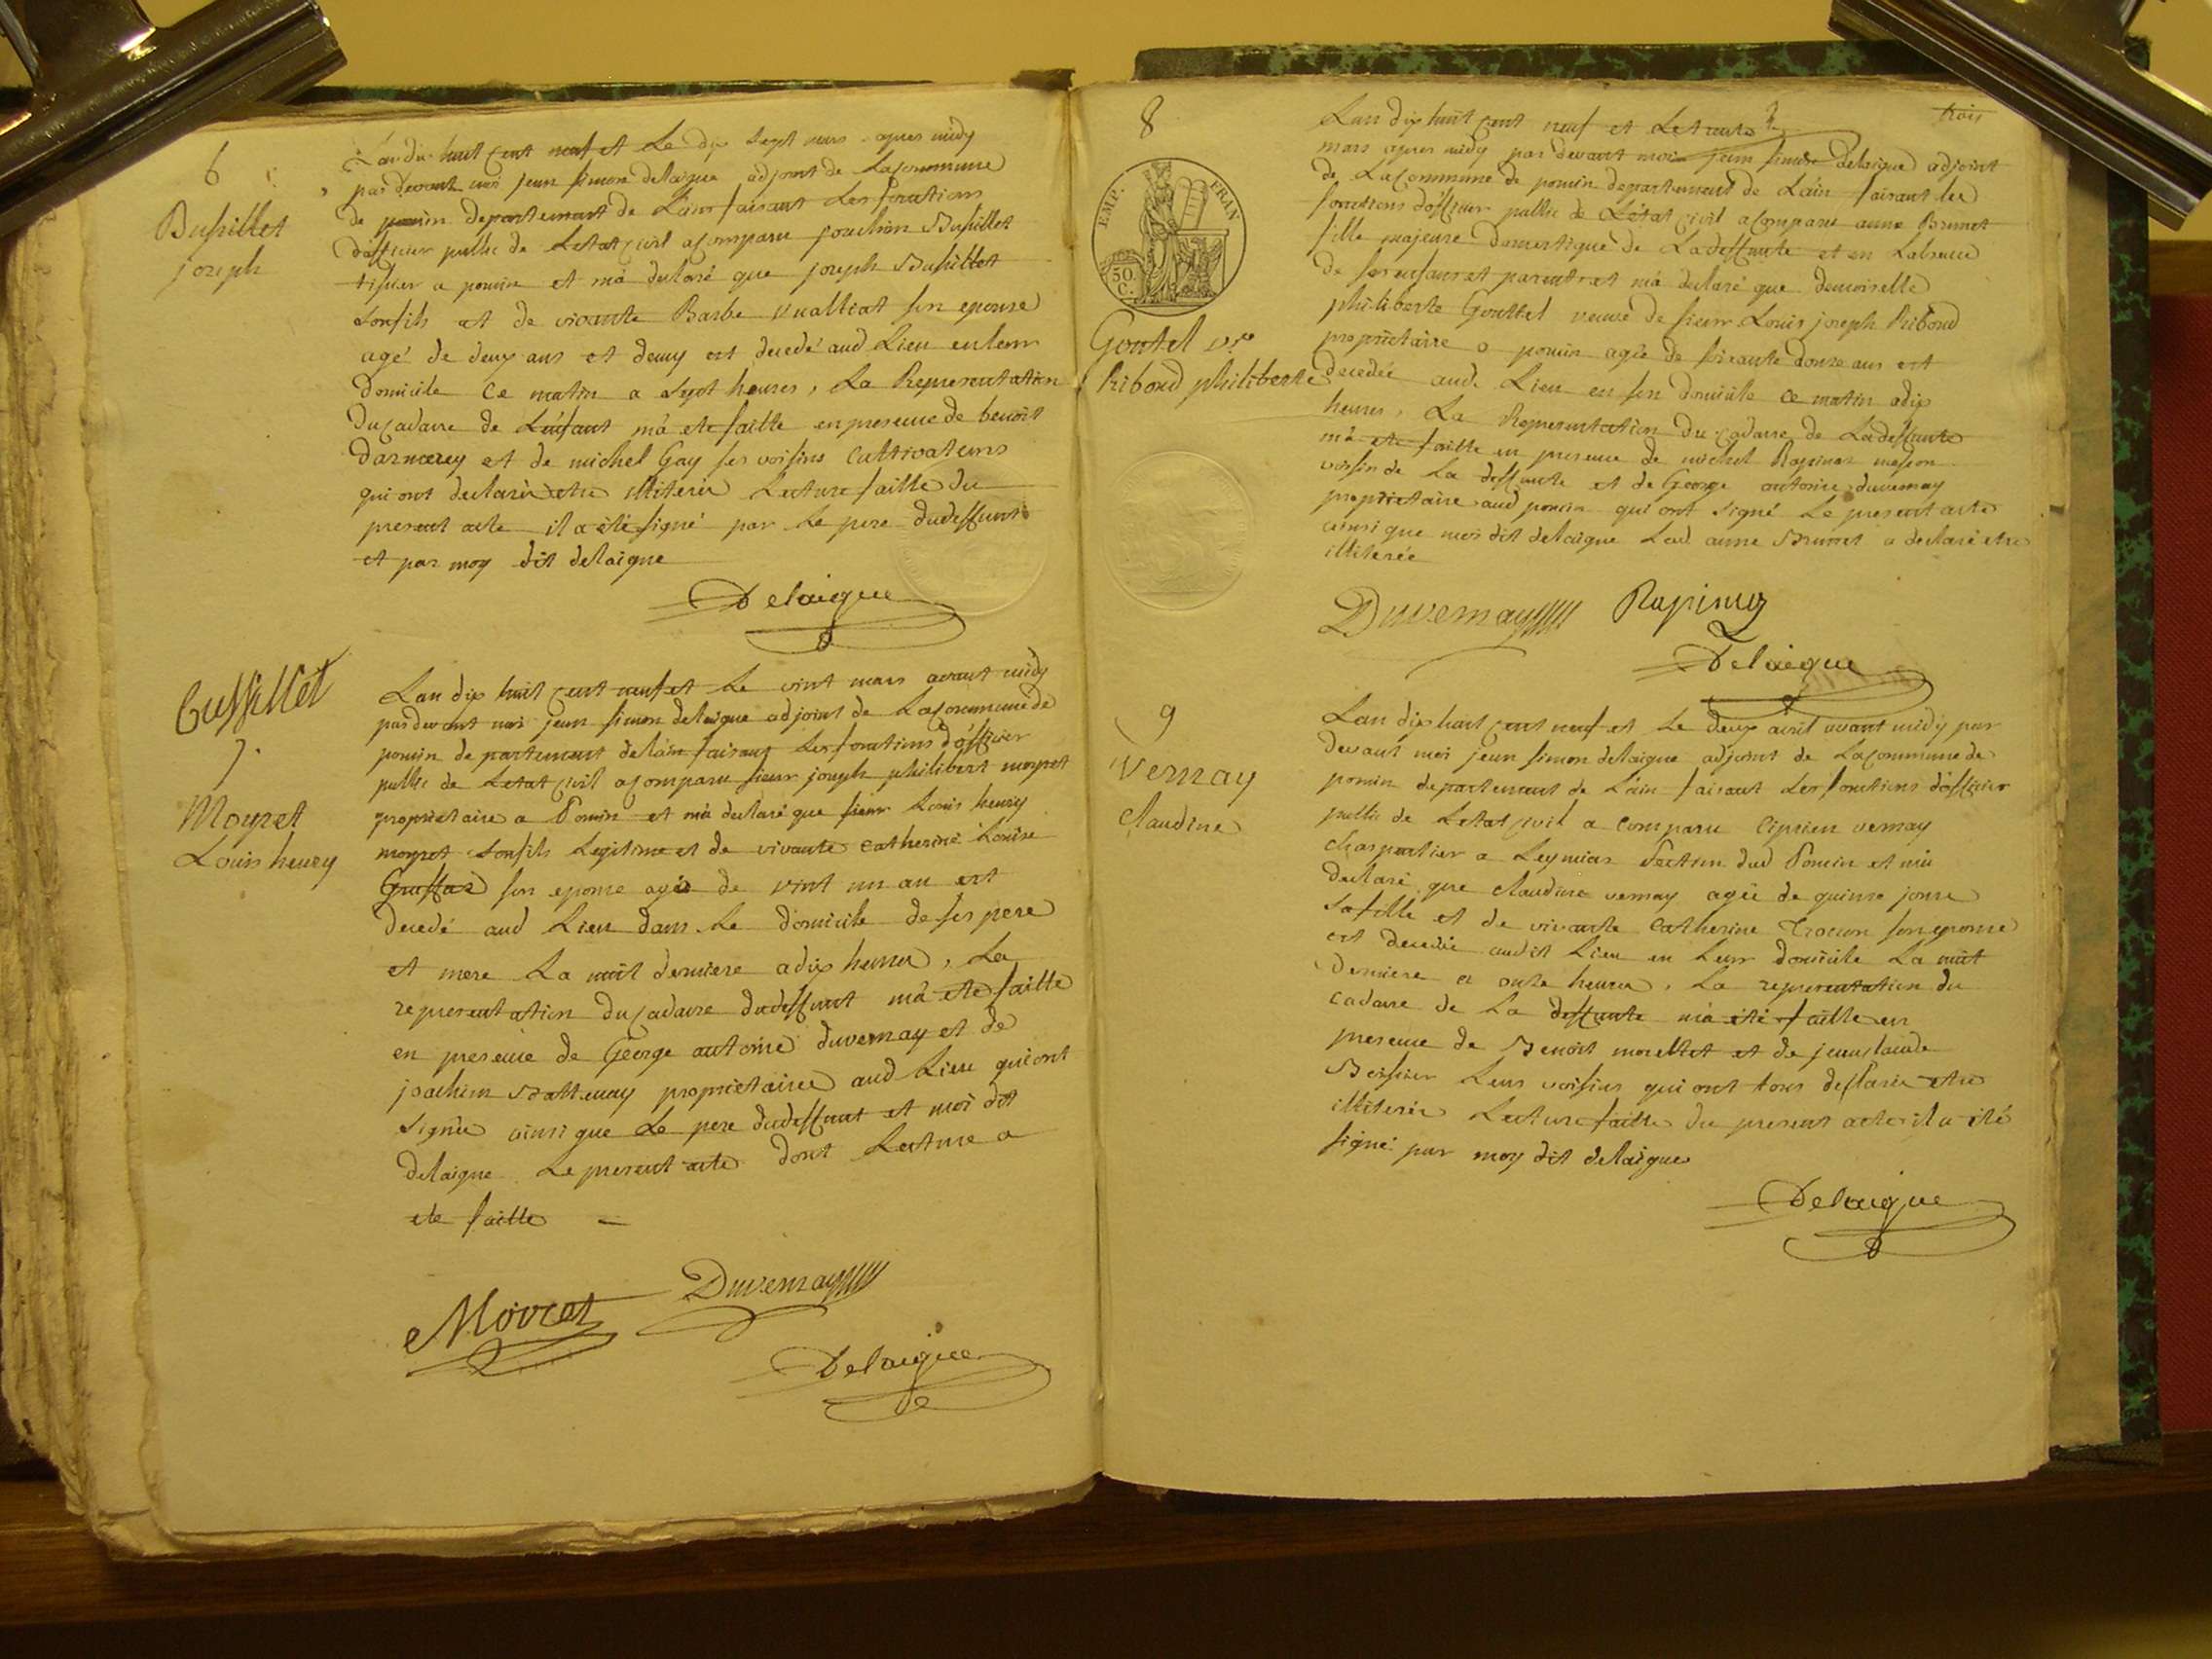 6
Bussillet
joseph
L'an dix huit cent neuf et le dix sept mars apres midy
par devant moi jean simon delaigue adjoint de la commune
de poncin departement de L'ain faisant les fonctions
d'officier public de Letat civil a comparu joachim Bussillet
tissier a poncin et m'a declaré que joseph Bussillet
son fils et de vivante Barbe son epouse
agé de deux ans et demy est decedé aud Lieu en leur
domicile ce matin a sept heures, La Representation
du cadavre de L'enfant m'a ete faitte en presence de benoit
darmerey et de michel Gay ses voisins cultivateurs
qui ont declaré etre illiterés Lecture faitte du
present acte il a été signé par le pere du deffunt
et par moy dit delaigue
Delaigue
Bussillet
7.
Moyret
Louis henry
L'an dix huit cent neuf et le vint mars avant midy
par devant moi jean simon delaigue adjoint de La commune de
poncin departement de lain faisant les fonctions d'officier
public de Letat civil a comparu sieur joseph philibert moyret
propriétaire a Poncin et m'a declaré que sieur Louis henry
moyret son fils Legitime et de vivante catherine Louise
son epouse agé de vint un an est
decedé aud Lieu dans le domicile de ses pere
et mere La nuit derniere a dix heures, La
representation du cadavre du deffunt m'a ete faitte
en presence de George antoine duvernay et de
joachim propriétaires aud Lieu qui ont
signés ainsi que le pere du deffunt et moi dit
delaigue Le present acte dont Lecture a
ete faitte
Moyret Duvernay
Delaigue
trois
8
EMP. FRAN
50 C.
Goutel vve
Riboud philiberte
L'an dix huit cent neuf et le trente
mars apres midy par devant moi jean simon delaigue adjoint
de La commune de poncin departement de L'ain faisant les
fonctions d'officier public de L'état civil a comparu anne Brunet
fille majeure domestique de La deffunte et en Labsence
de ses enfans et parents et m'a declaré que demoiselle
philiberte Gouttel veuve de sieur Louis joseph Riboud
propriétaire a poncin agée de soixante douze ans est
decedée aud. Lieu en son domicile ce matin a dix
heures, La Representation du cadavre de La deffunte
m'a ete faitte en presence de michel Rapinaz masson
voisin de La deffunte et de George antoine duvernay
propriétaire aud poncin qui ont signé Le present acte
ainsi que moi dit delaigue Lad anne Brunet a declaré etre
illiterée
Duvernay Rapinaz
Delaigue
9
Vernay
claudine
L'an dix huit cent neuf et Le deux avril avant midy par
devant moi jean simon delaigue adjoint de La commune de
poncin departement de L'ain faisant les fonctions d'officier
public de Letat civil a comparu Ciprien vernay
charpentier a Leymiaz section dud Poncin et m'a
declaré que claudine vernay agée de quinze jours
sa fille et de vivante catherine Trocon son epouse
est decedée audit Lieu en Leur domicile La nuit
derniere a onze heures, La representation du
cadavre de La deffunte m'a été faitte en
presence de Benoit morellet et de jean claude
Boissier Leurs voisins qui ont tous declaré etre
illiterés Lecture faitte du present acte il a été
signé par moy dit delaigue
Delaigue